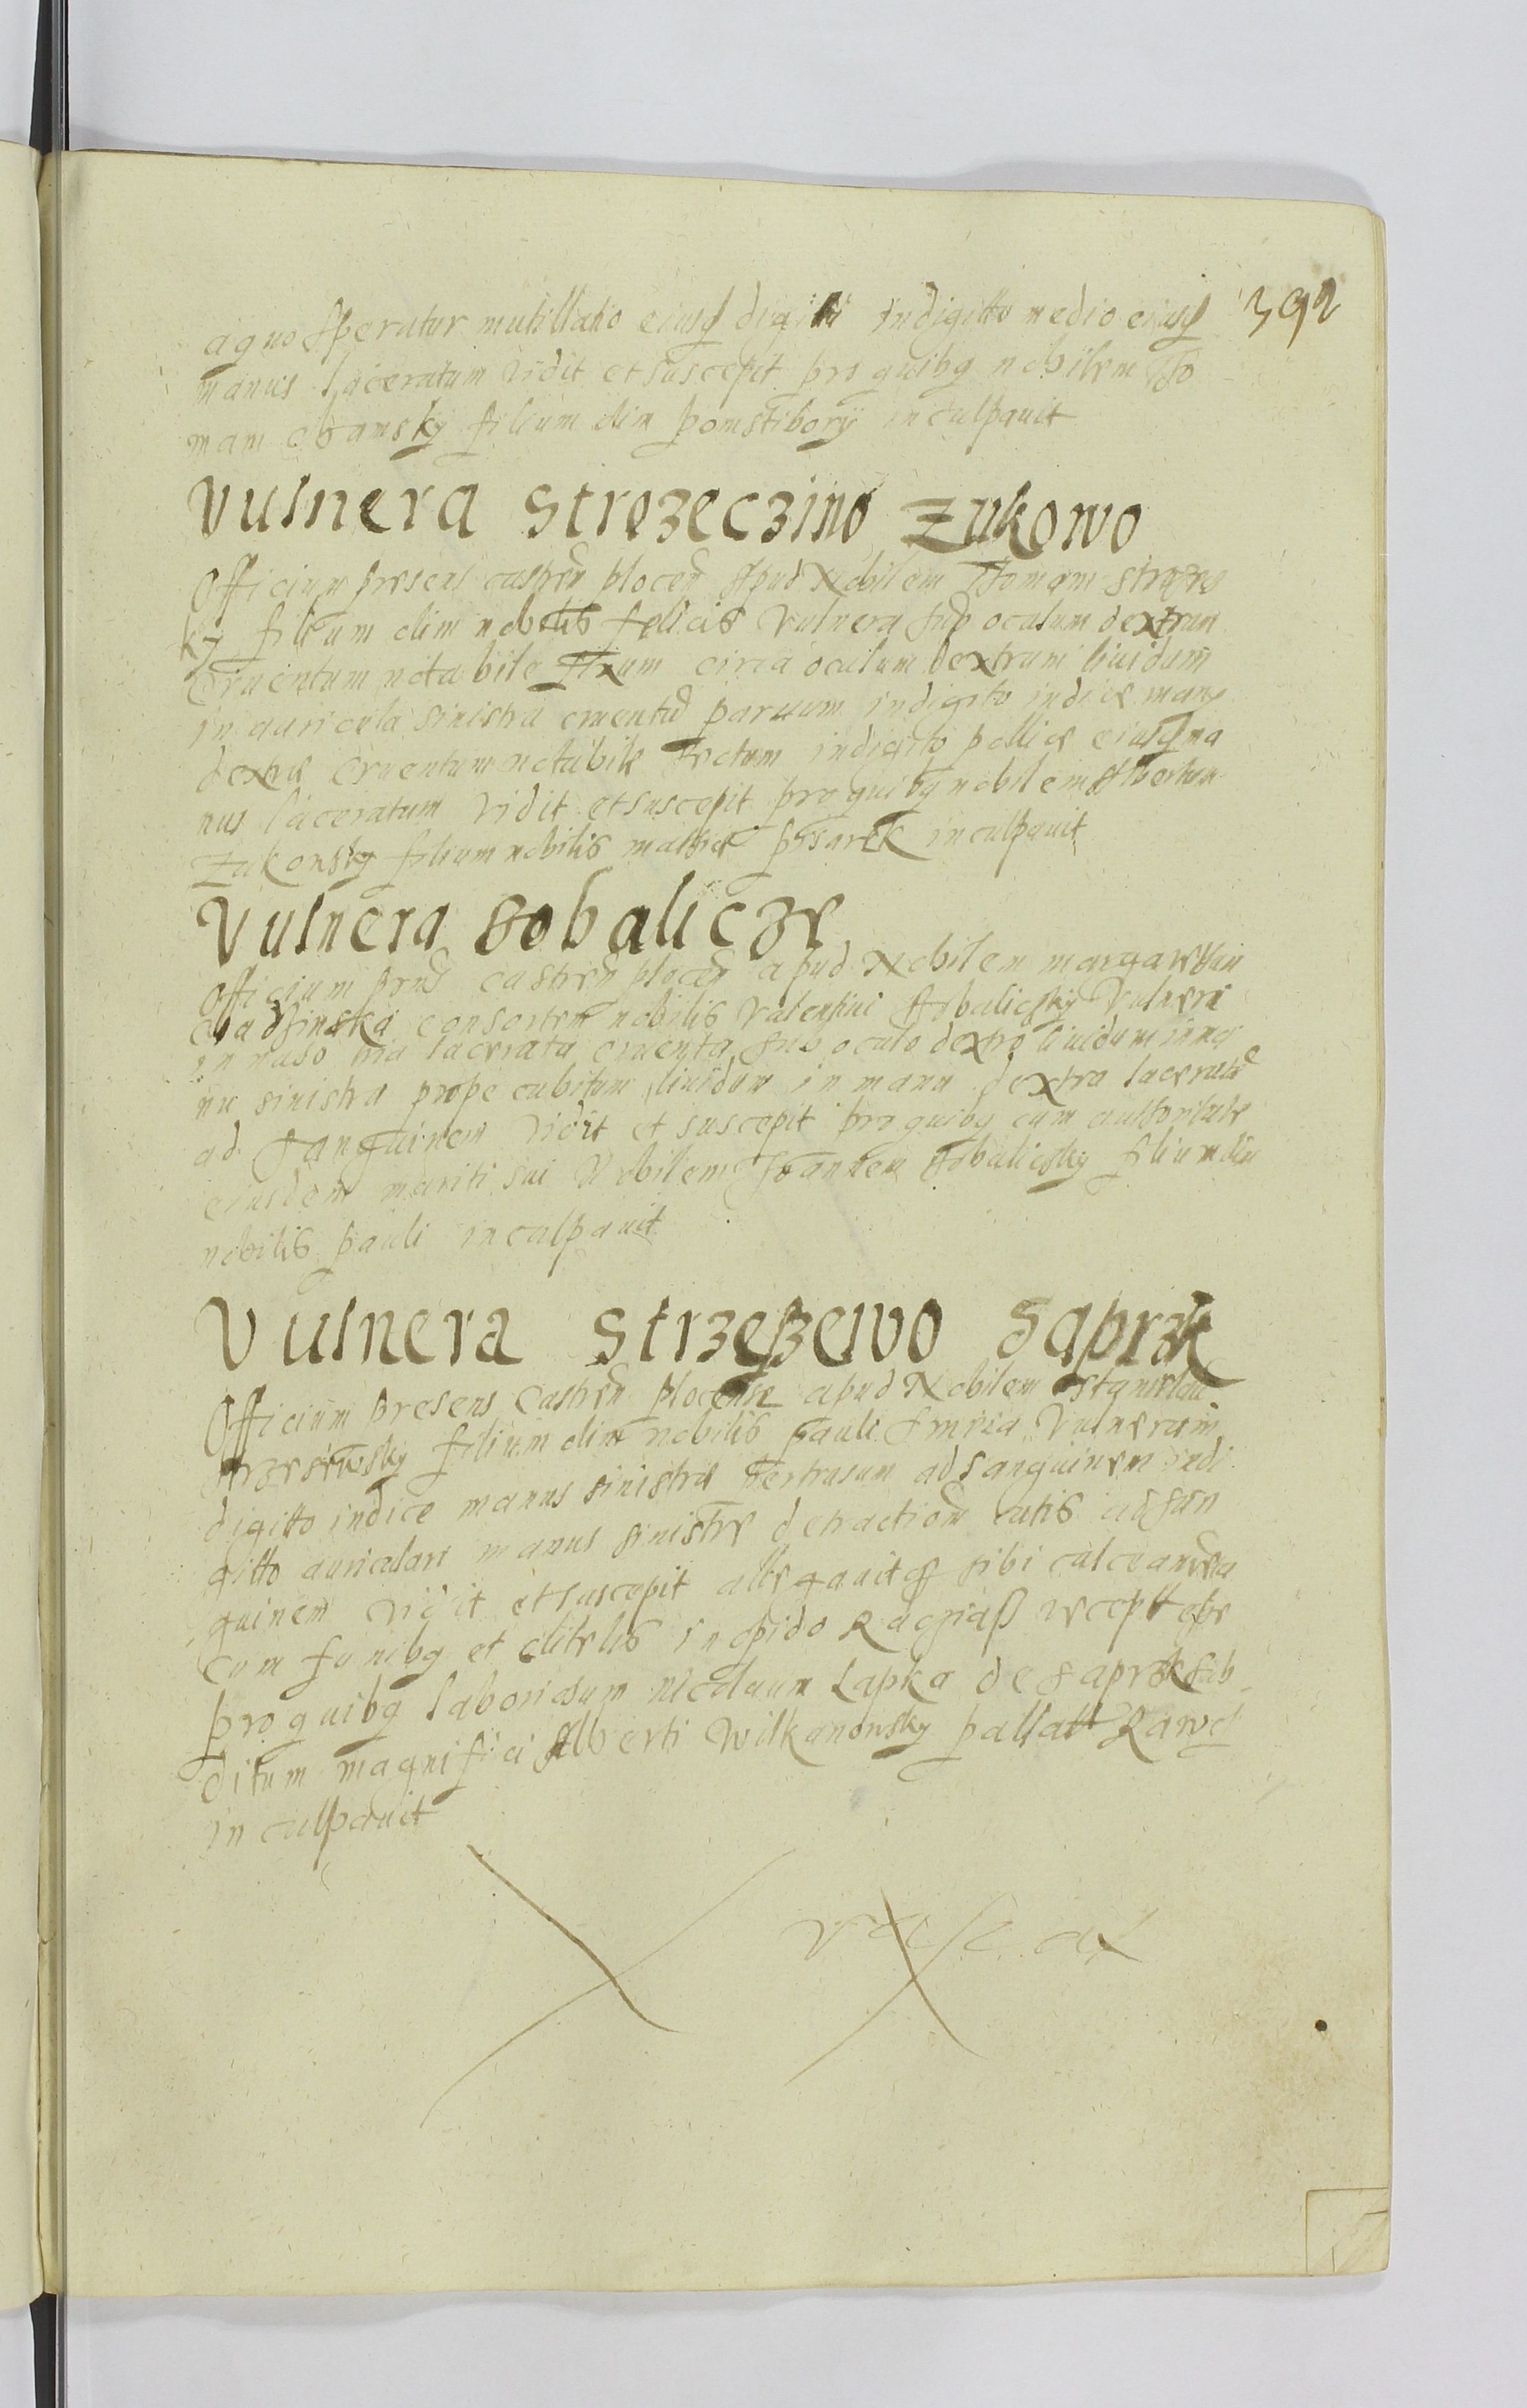 392
a quo speratur mutillatio eiusd digiti in digitto medio eiusd
manus laceratum vidit et suscepit pro quibq nobilem To
mam filium olim pomstibory inculpauit
Vulnera Strozeczino Zukowo
Officium presens castren plocen Apud Nobilem Tomam
ky filium olim nobilis felicis vulnera sup oculum dextrum
Cruentum notabile circa oculum dextrum liuidum
in auricula sinistra cruentu paruum in digito indice manus
dextre Cruentum notabile sectum in digito pollice eiusd ma
nus laceratum vidit et suscepit pro quibq nobilem Albertum
Zukowsky filium nobilis mathie pisarek inculpauit
Vulnera Sobalicze
Officium prns castren plocen apud Nobilem
consortem nobilis Valentini Sobaliczky Vulnera
in naso lacerata cruenta sub oculo dextro liuidum in ma
nu sinistra prope cubitum liuidum in manu dextra laceratu
ad Sanguinem vidit et suscepit pro quibq cum authoritate
eiusdem mariti sui Nobilem Joannem Sobaliczky filium olim
nobilis pauli inculpauit
Vulnera Strzeszewo Saprzk
Officium presens Castren plocense apud Nobilem Stanislau
Strzesewsky filium olim nobilis pauli Vulnera in
digitto indice manus sinistre pertrusum ad sanguinem in di
gitto auriculari manus sinistre detraction cutis ad san
guinem vidit et suscepit allegauit sibi
cum funibq et clitelis in opido
pro quibq laboriosum nicolaum Lapka de saprzk sub
ditum magnifici Alberti Wilkanowsky pallatt Rawe
inculpauit